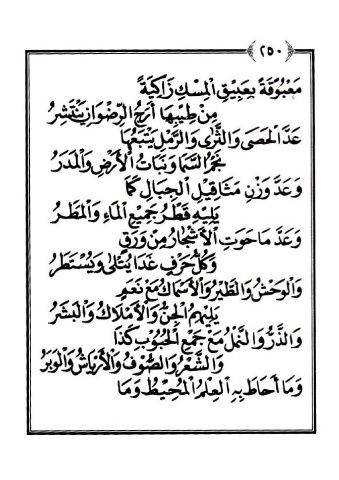 ﴿٢٥٠﴾
مَعْبُوقَةً بِعَبِيْقِ الْمِسْكِ زَاكِيَةً
مِنْ طِيْبِهَا أَرَجُ الرِّضْوَانِ يَنْتَشِرُ
عَدَّ الْحَصَى وَالثَّرَى وَالرَّمْلِ يَتْبَعُهَا
نَجْمُ السَّمَا وَنَبَاتُ الْأَرْضِ وَالْمَدَرُ
وَعَدَّ وَزْنِ مَثَاقِيْلِ الْجِبَالِ كَمَا
يَلِيْهِ قَطْرُ جَمِيْعِ الْمَاءِ وَالْمَطَرُ
وَعَدَّ مَا حَوَتِ الْأَشْجَارُ مِنْ وَرَقٍ
وَكُلُّ حَرْفٍ غَدَا يُتْلَى وَيُسْتَطَرُ
وَالْوَحْشُ وَالطَّيْرُ وَالْأَسْمَاكُ مَعْ نَعَمٍ
يَلِيْهِمُ الْجِنُّ وَالْأَمْلَاكُ وَالْبَشَرُ
وَالذَّرُّ وَالنَّمْلُ مَعْ جَمْعِ الْحُبُوْبِ كَذَا
وَالشَّعْرُ وَالصُّوْفُ وَالْأَرْيَاشُ وَالْوَبَرُ
وَمَا أَحَاطَ بِهِ الْعِلْمُ الْمُحِيْطُ وَمَا